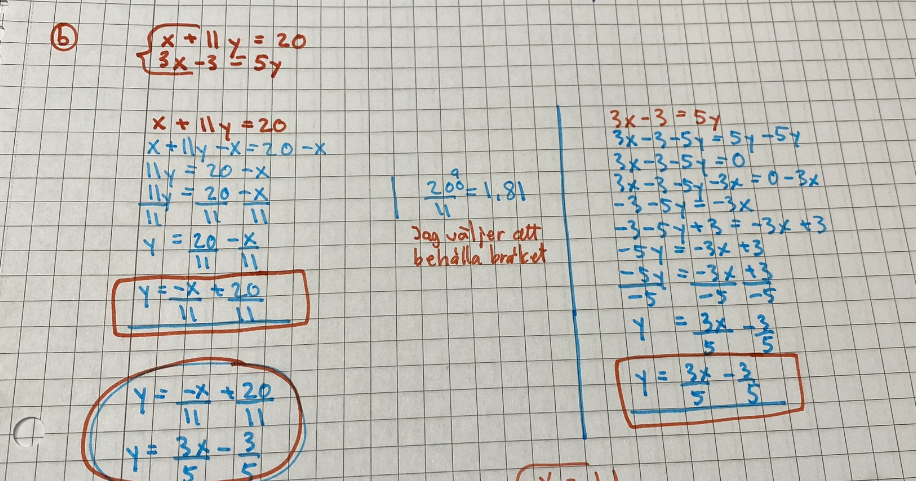 b
x + 11y = 20
3x - 3 = 5y
x + 11y = 20
x + 11y - x = 20 - x
11y = 20 - x
11y/11 = 20/11 - x/11
y = 20/11 - x/11
y = -x/11 + 20/11
y = -x/11 + 20/11
y = 3x/5 - 3/5
= 1,81
Jag väljer att
behålla bråket
3x - 3 = 5y
3x - 3 - 5y = 5y - 5y
3x - 3 - 5y = 0
3x - 3 - 5y - 3x = 0 - 3x
-3 - 5y = -3x
-3 - 5y + 3 = -3x + 3
-5y = -3x + 3
-5y/-5 = -3x/-5 + 3/-5
y = 3x/5 - 3/5
y = 3x/5 - 3/5